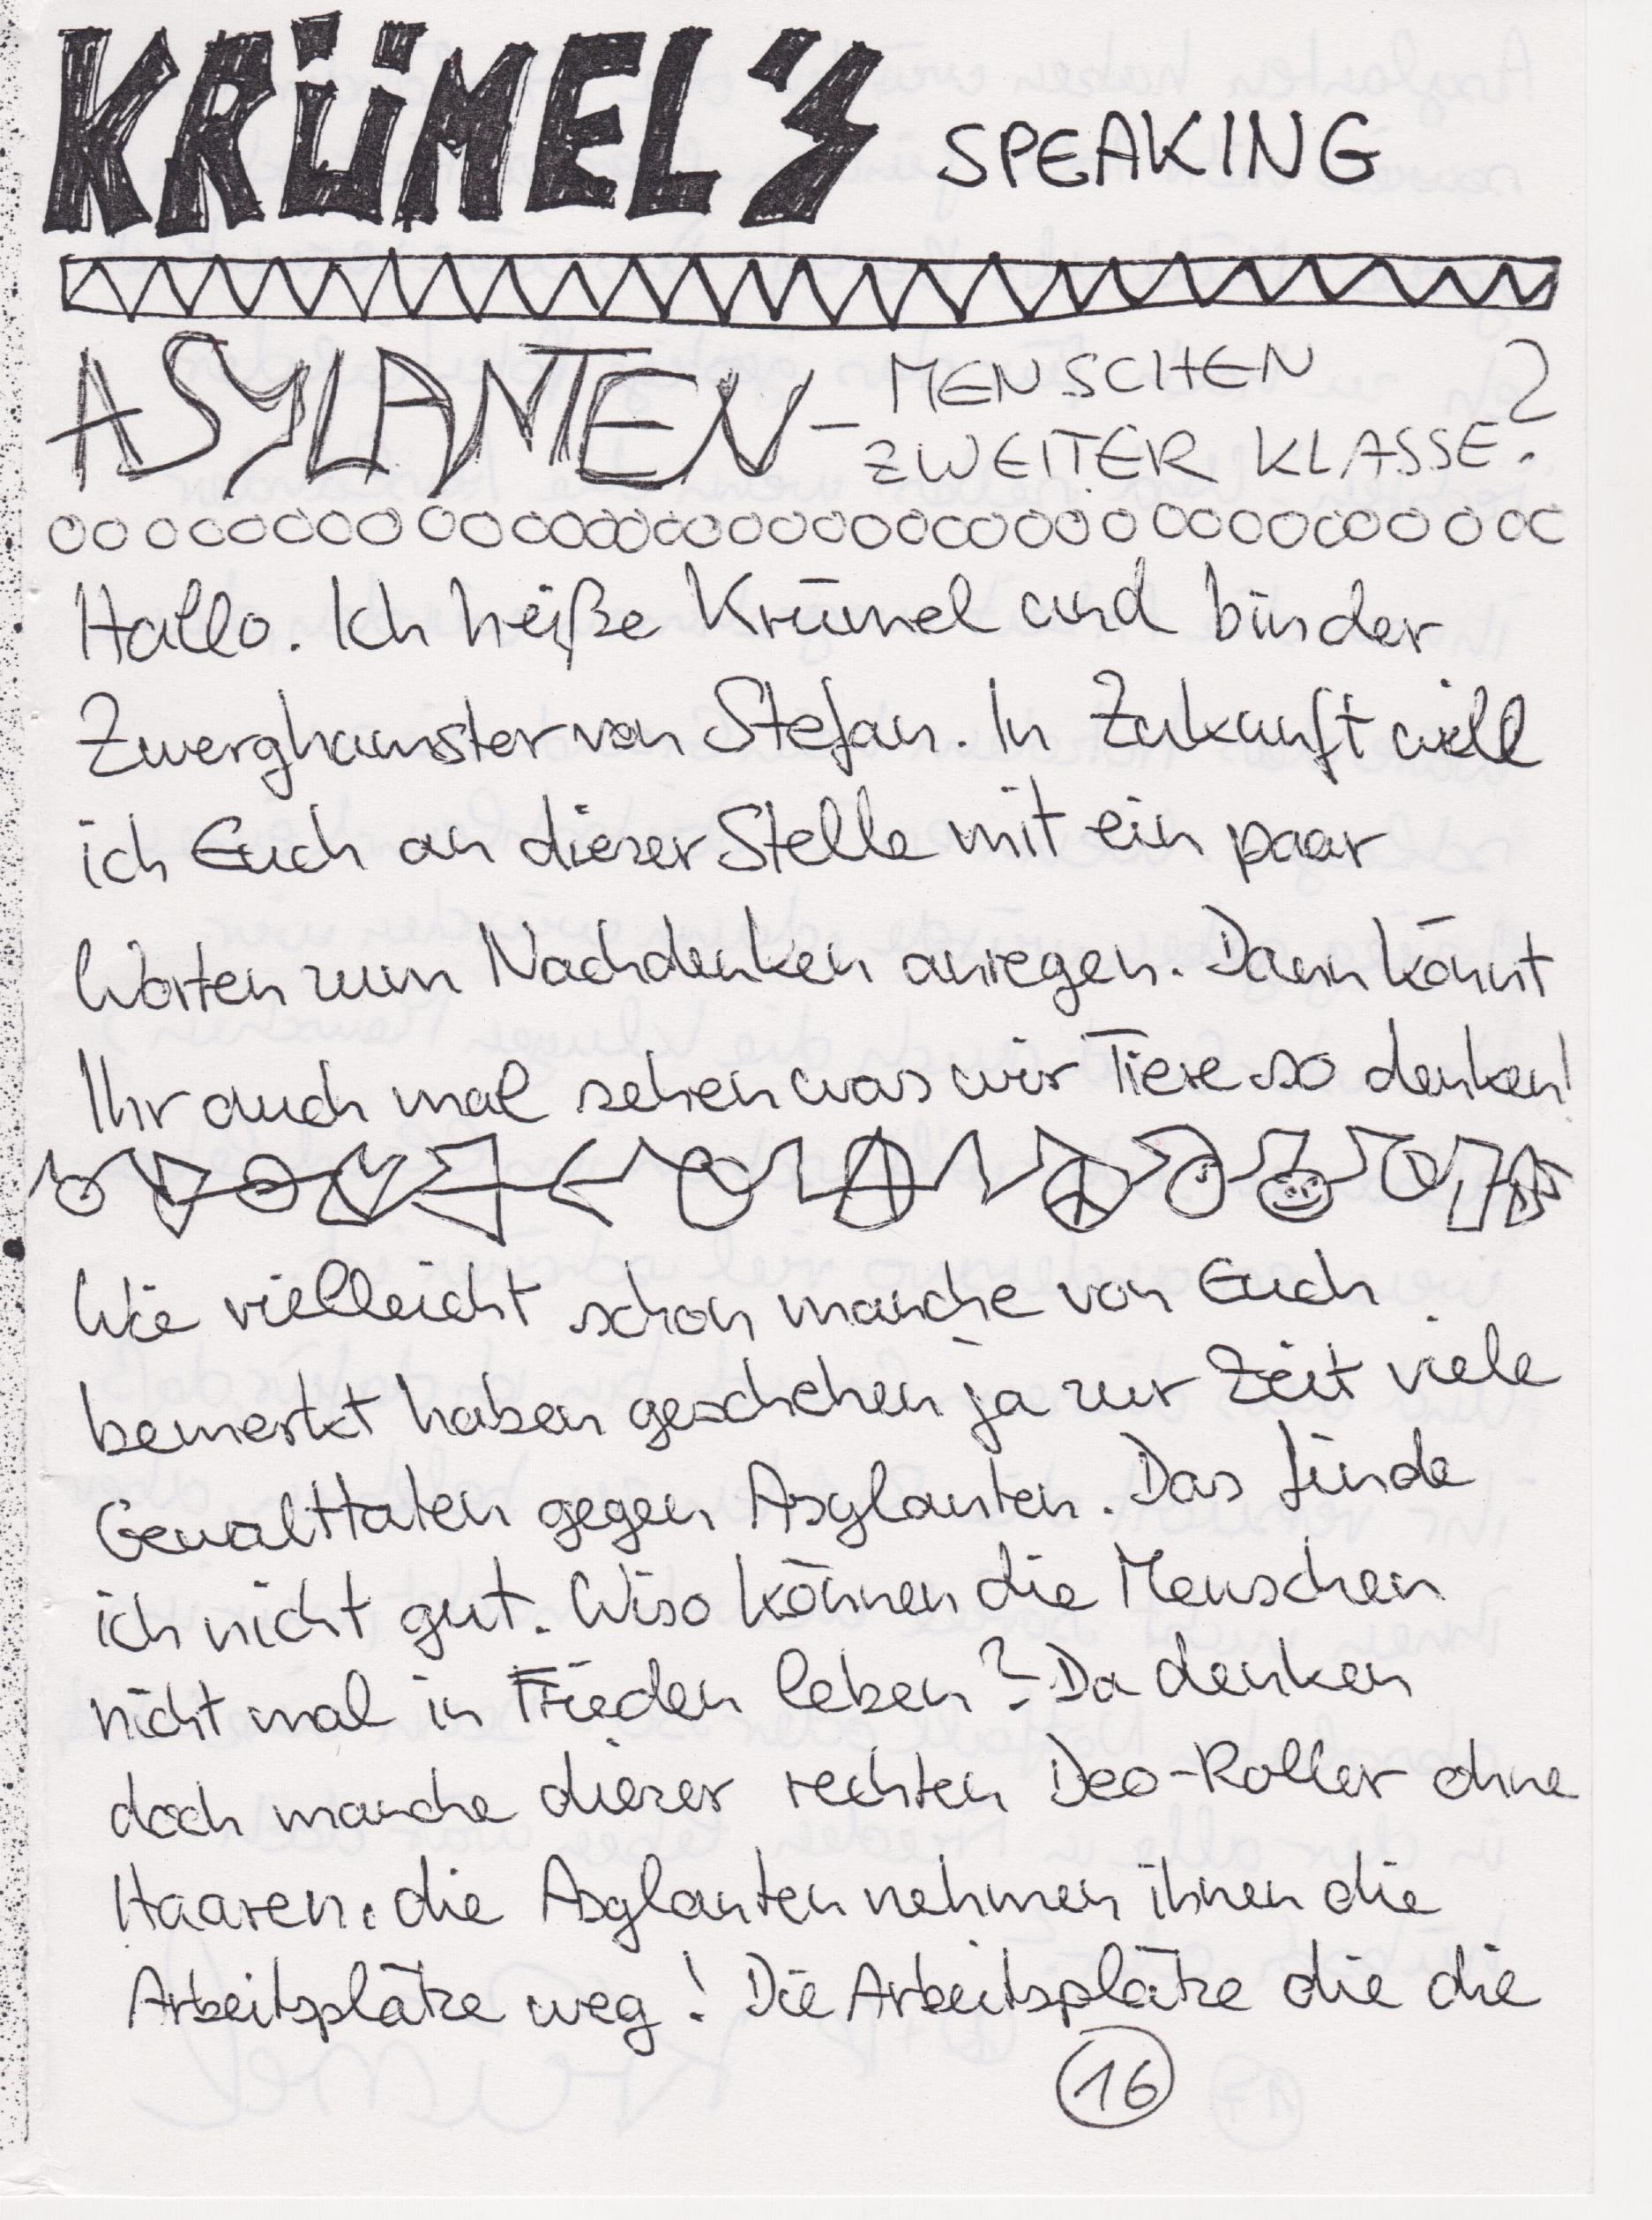 KRÜMEL'S SPEAKING
ASYLANTEN - MENSCHEN
ZWEITER KLASSE?
Hallo. Ich heiße Krümel und bin der
Zwerghamster von Stefan. In Zukunft will
ich Euch an dieser Stelle mit ein paar
Worten zum Nachdenken anregen. Dann könnt
Ihr auch mal sehen was wir Tiere so denken!
Wie vielleicht schon manche von Euch
bemerkt haben geschehen ja zur Zeit viele
Gewalttaten gegen Asylanten. Das finde
ich nicht gut. Wiso können die Menschen
nicht mal in Frieden leben? Da denken
doch manche dieser rechten Deo-Roller ohne
Haaren: die Asylanten nehmen ihnen die
Arbeitsplätze weg! Die Arbeitsplätze die die
16